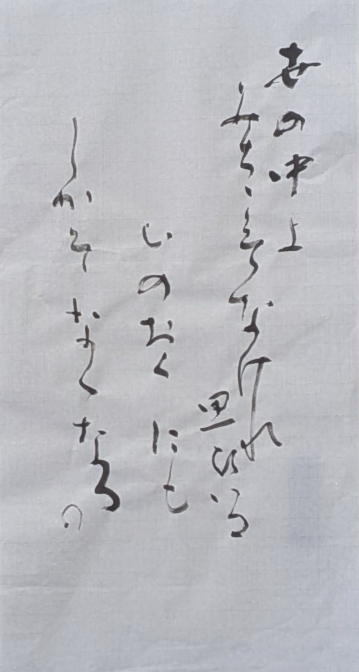 世の中よ
みちこそなけれ
思ひいる
山のおくにも
しかそなくなる